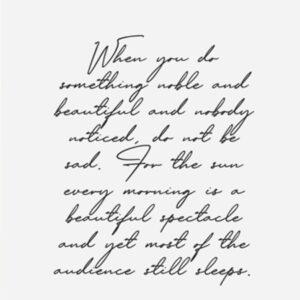 When you do
something noble and
beautiful and nobody
noticed, do not be
sad. For the sun
every morning is a
beautiful spectacle
and yet most of the
audience still sleeps.